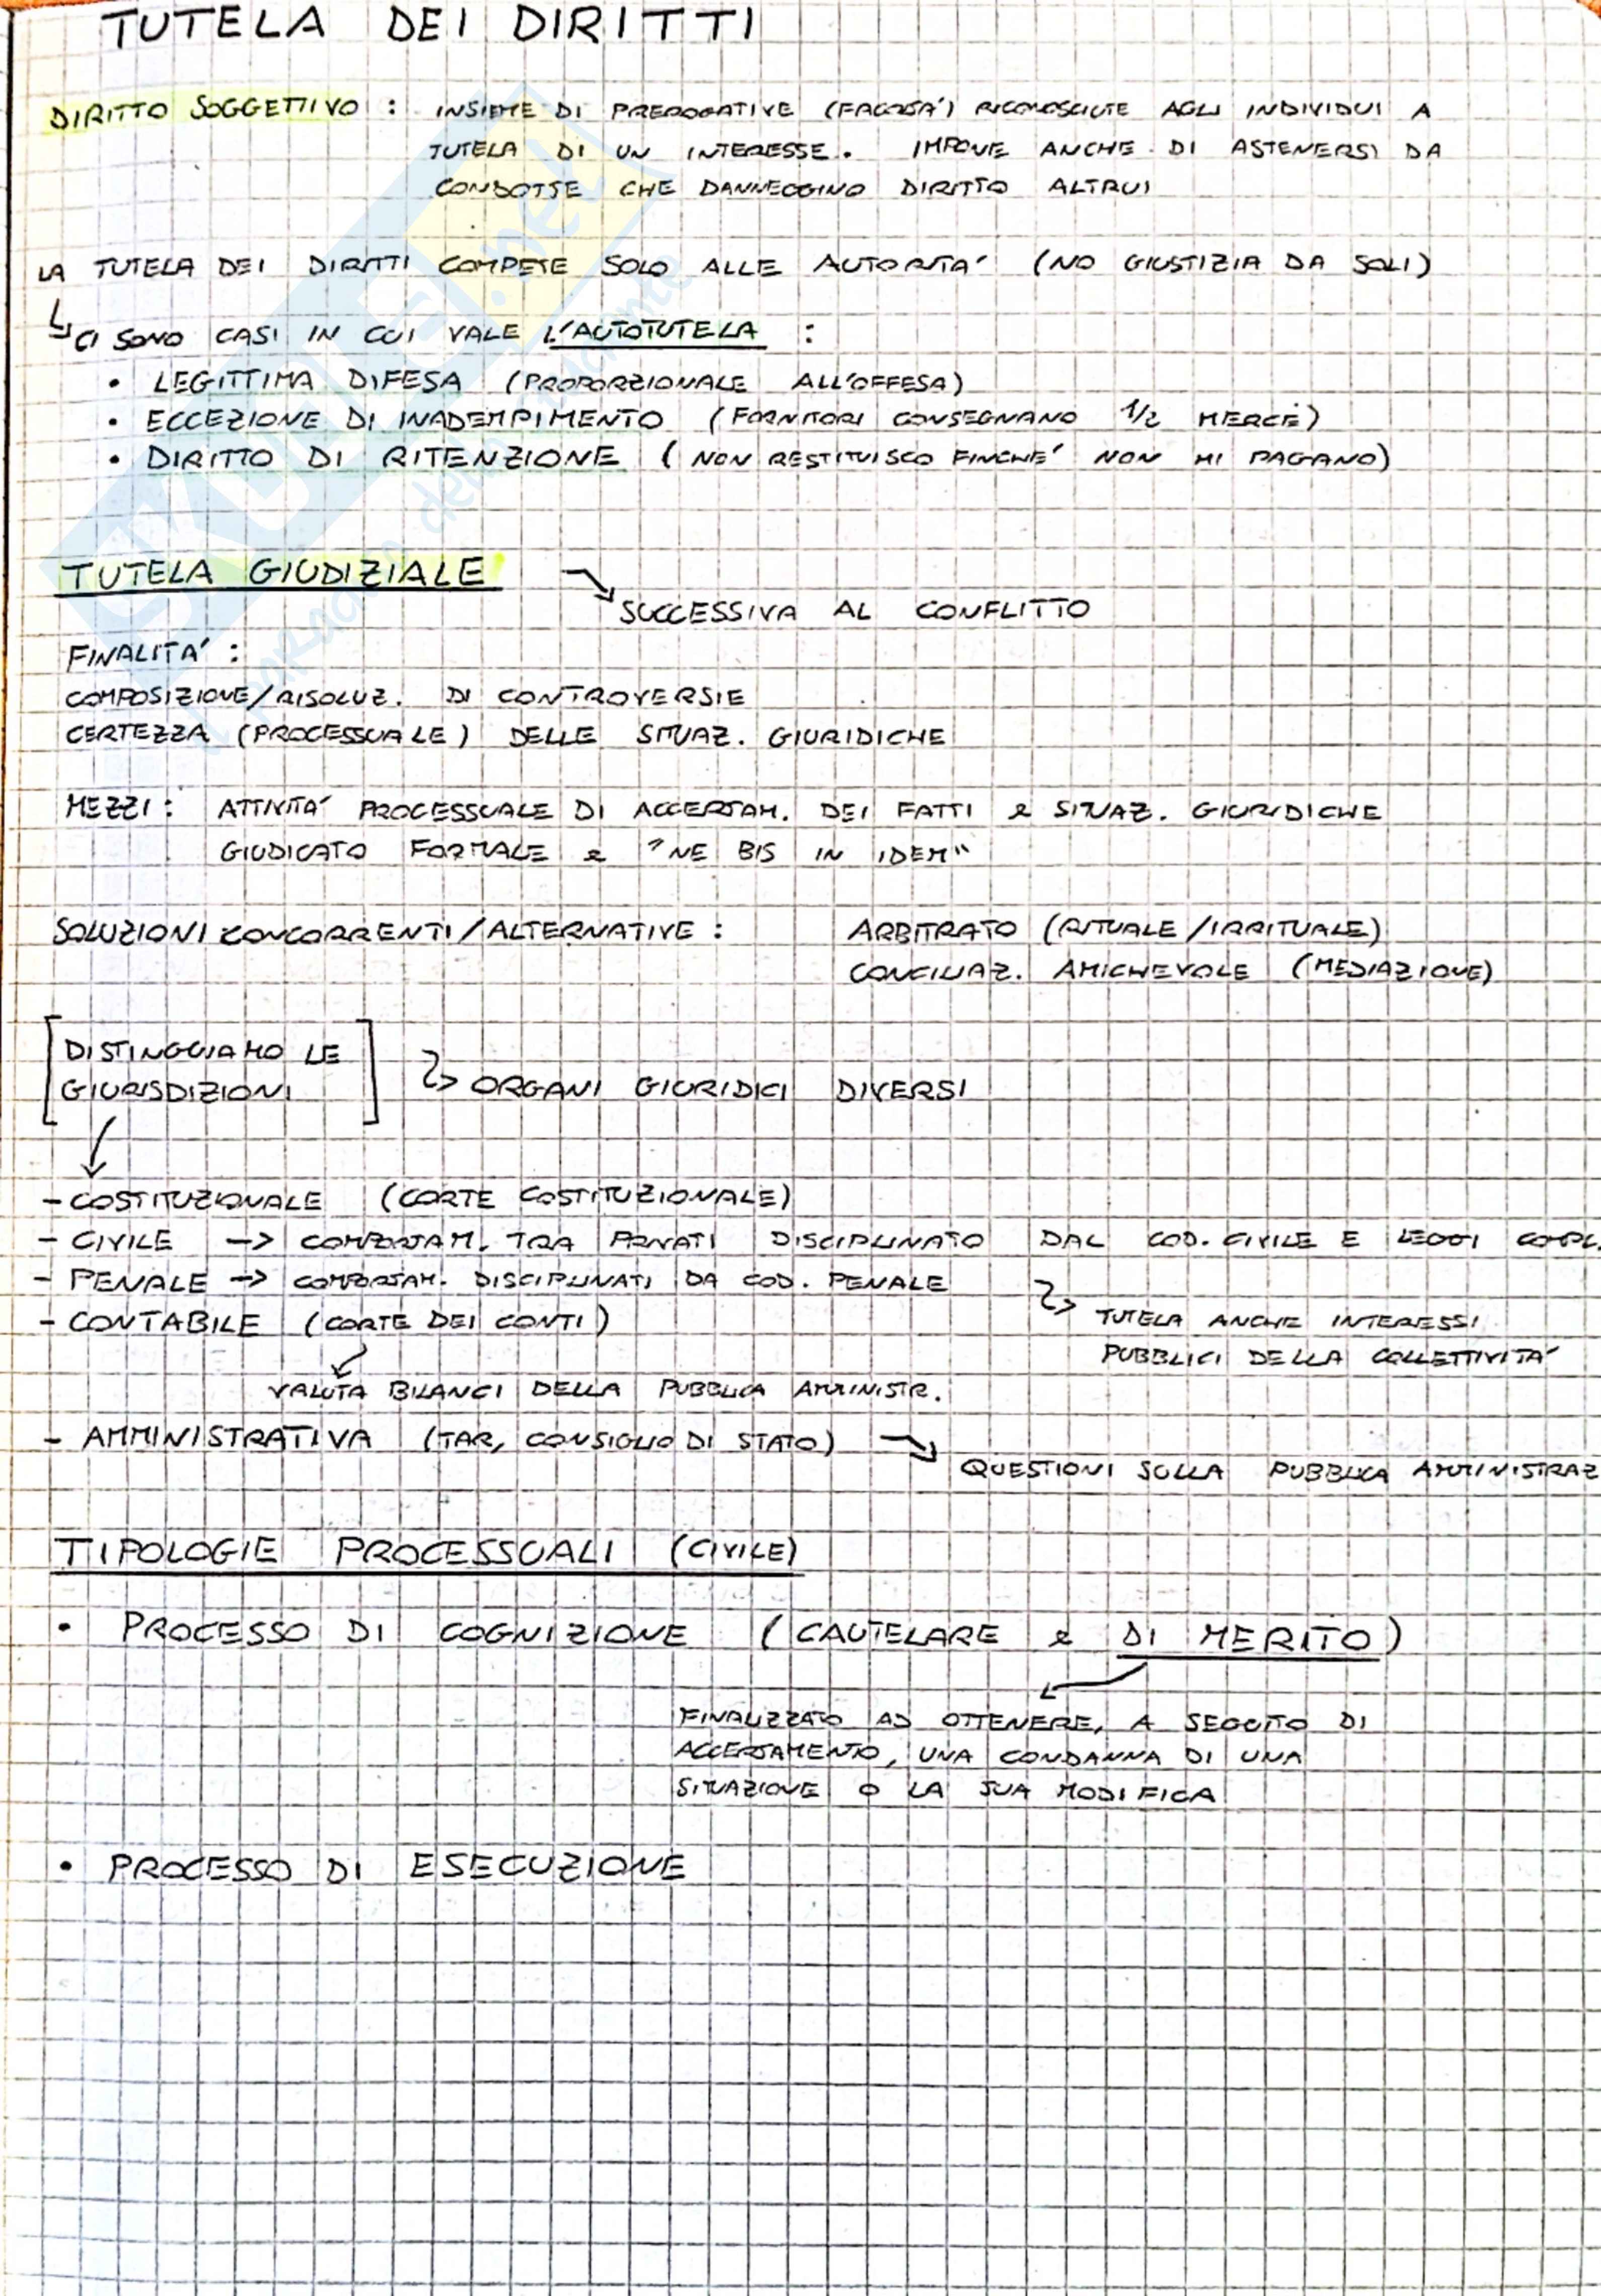 TUTELA DEI DIRITTI
DIRITTO SOGGETTIVO : INSIEME DI PREROGATIVE (FACOLTA') RICONOSCIUTE AGLI INDIVIDUI A
TUTELA DI UN INTERESSE. IMPONE ANCHE DI ASTENERSI DA
CONDOTTE CHE DANNEGGINO DIRITTO ALTRUI
LA TUTELA DEI DIRITTI COMPETE SOLO ALLE AUTORITA' (NO GIUSTIZIA DA SOLI)
CI SONO CASI IN CUI VALE L'AUTOTUTELA :
• LEGITTIMA DIFESA (PROPORZIONALE ALL'OFFESA)
• ECCEZIONE DI INADEMPIMENTO (FORNITORI CONSEGNANO 1/2 MERCE)
• DIRITTO DI RITENZIONE (NON RESTITUISCO FINCHE' NON MI PAGANO)
TUTELA GIUDIZIALE
SUCCESSIVA AL CONFLITTO
FINALITA' :
COMPOSIZIONE/RISOLUZ. DI CONTROVERSIE
CERTEZZA (PROCESSUALE) DELLE SITUAZ. GIURIDICHE
MEZZI : ATTIVITA' PROCESSUALE DI ACCERTAM. DEI FATTI e SITUAZ. GIURIDICHE
GIUDICATO FORMALE e "NE BIS IN IDEM"
SOLUZIONI CONCORRENTI/ALTERNATIVE : ARBITRATO (RITUALE/IRRITUALE)
CONCILIAZ. AMICHEVOLE (MEDIAZIONE)
DISTINGUIAMO LE
GIURISDIZIONI
ORGANI GIURIDICI DIVERSI
- COSTITUZIONALE (CORTE COSTITUZIONALE)
- CIVILE -> COMPORTAM. TRA PRIVATI DISCIPLINATO DAL COD. CIVILE E LEGGI COMPL.
- PENALE -> COMPORTAM. DISCIPLINATI DA COD. PENALE
TUTELA ANCHE INTERESSI
PUBBLICI DELLA COLLETTIVITA'
- CONTABILE (CORTE DEI CONTI)
VALUTA BILANCI DELLA PUBBLICA AMMINISTR.
- AMMINISTRATIVA (TAR, CONSIGLIO DI STATO)
QUESTIONI SULLA PUBBLICA AMMINISTRAZ
TIPOLOGIE PROCESSUALI (CIVILE)
• PROCESSO DI COGNIZIONE (CAUTELARE e DI MERITO)
FINALIZZATO AD OTTENERE, A SEGUITO DI
ACCERTAMENTO, UNA CONDANNA DI UNA
SITUAZIONE O LA SUA MODIFICA
• PROCESSO DI ESECUZIONE